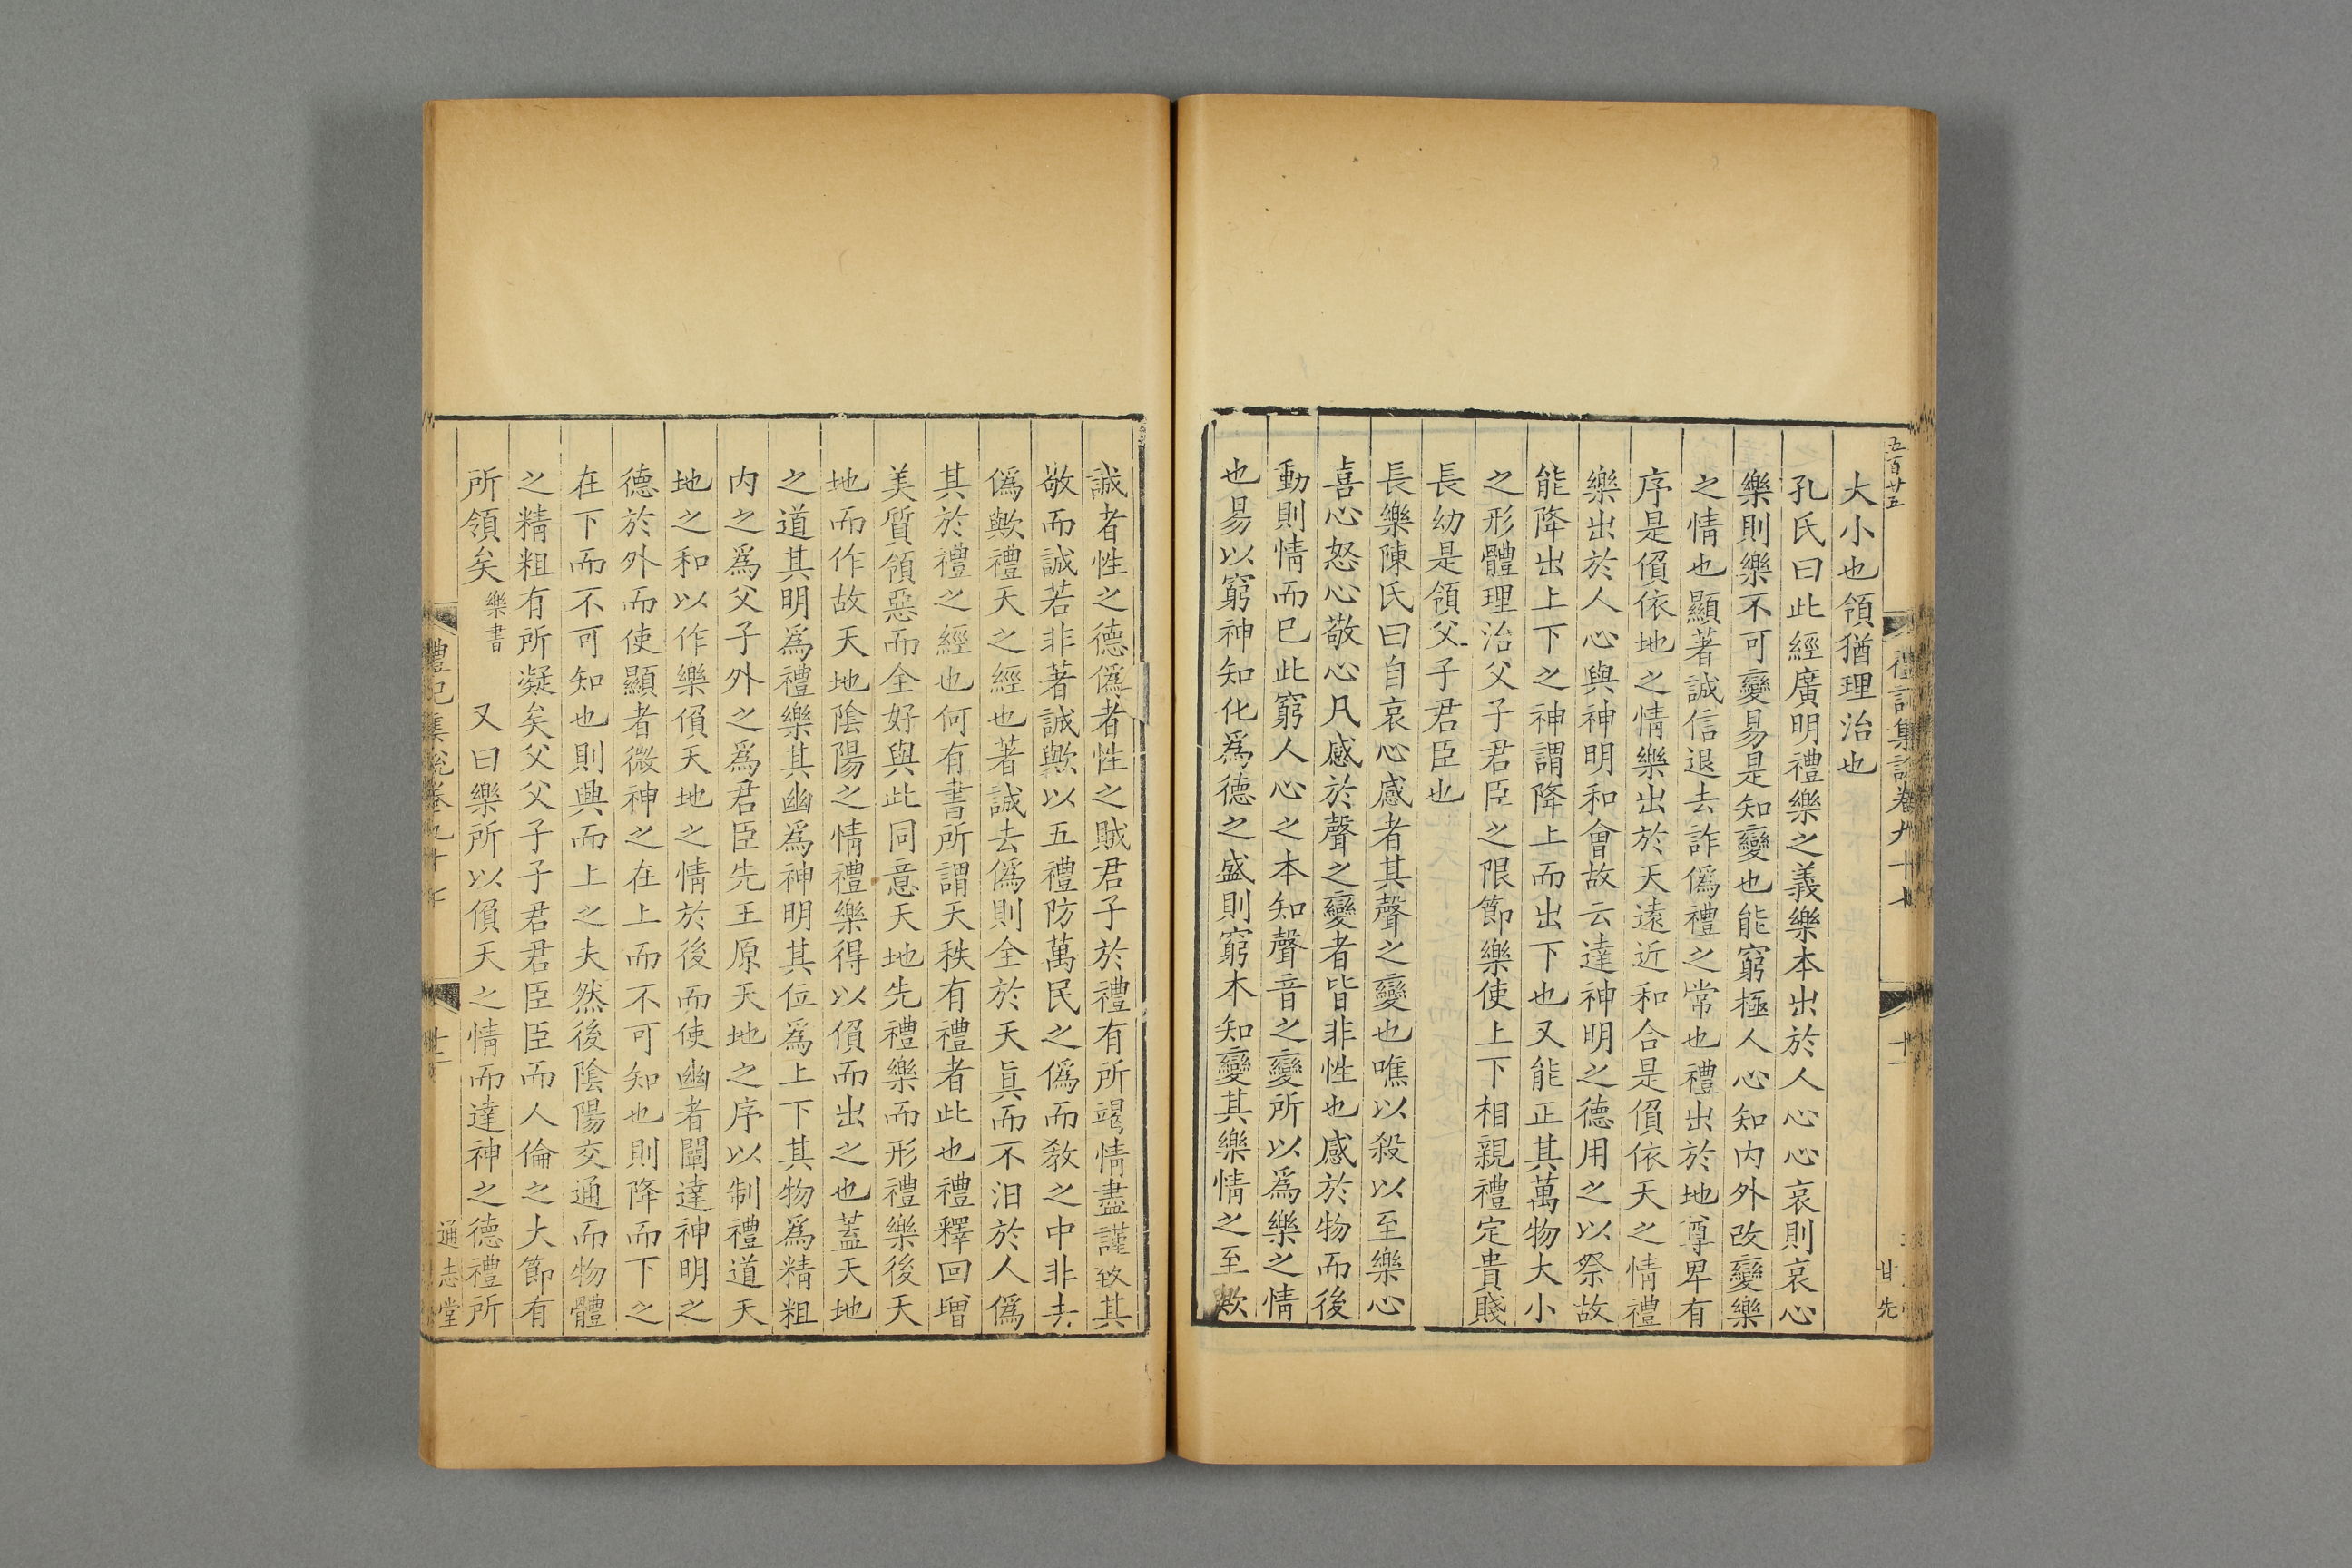 五百廿五
禮記集說卷九十七
十一
甘先
大小也領猶理治也
孔氏曰此經廣明禮樂之義樂本出於人心心哀則哀心
樂則樂不可變易是知變也能窮極人心知內外改變樂
之情也顯著誠信退去詐偽禮之常也禮出於地尊卑有
序是偩依地之情樂出於天遠近和合是偩依天之情禮
樂出於人心與神明和會故云達神明之德用之以祭故
能降出上下之神謂降上而出下也又能正其萬物大小
之形體理治父子君臣之限節樂使上下相親禮定貴賤
長幼是領父子君臣也
長樂陳氏曰自哀心感者其聲之變也噍以殺以至樂心
喜心怒心敬心凡感於聲之變者皆非性也感於物而後
動則情而已此窮人心之本知聲音之變所以為樂之情
也易以窮神知化為德之盛則窮本知變其樂情之至歟
誠者性之德偽者性之賊君子於禮有所竭情盡謹致其
敬而誠若非著誠歟以五禮防萬民之偽而敎之中非去
偽歟禮天之經也著誠去偽則全於天眞而不汨於人偽
其於禮之經也何有書所謂天秩有禮者此也禮釋回增
美質領惡而全好與此同意天地先禮樂而形禮樂後天
地而作故天地陰陽之情禮樂得以偩而出之也蓋天地
之道其明為禮樂其幽為神明其位為上下其物為精粗
內之為父子外之為君臣先王原天地之序以制禮道天
地之和以作樂偩天地之情於後而使幽者闡達神明之
德於外而使顯者微神之在上而不可知也則降而下之
在下而不可知也則興而上之夫然後陰陽交通而物體
之精粗有所凝矣父父子子君君臣臣而人倫之大節有
所領矣樂書 又曰樂所以偩天之情而達神之德禮所
禮記集說卷九十七
十一
通志堂